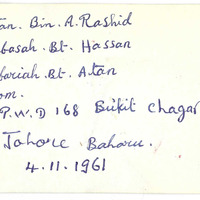 tan. Bin. A. Rashid
basah. Bt. Hassan
fariah. Bt. Atan
om.
P.W.D 168 Bukit Chagar
Johore Baharu.
4.11.1961